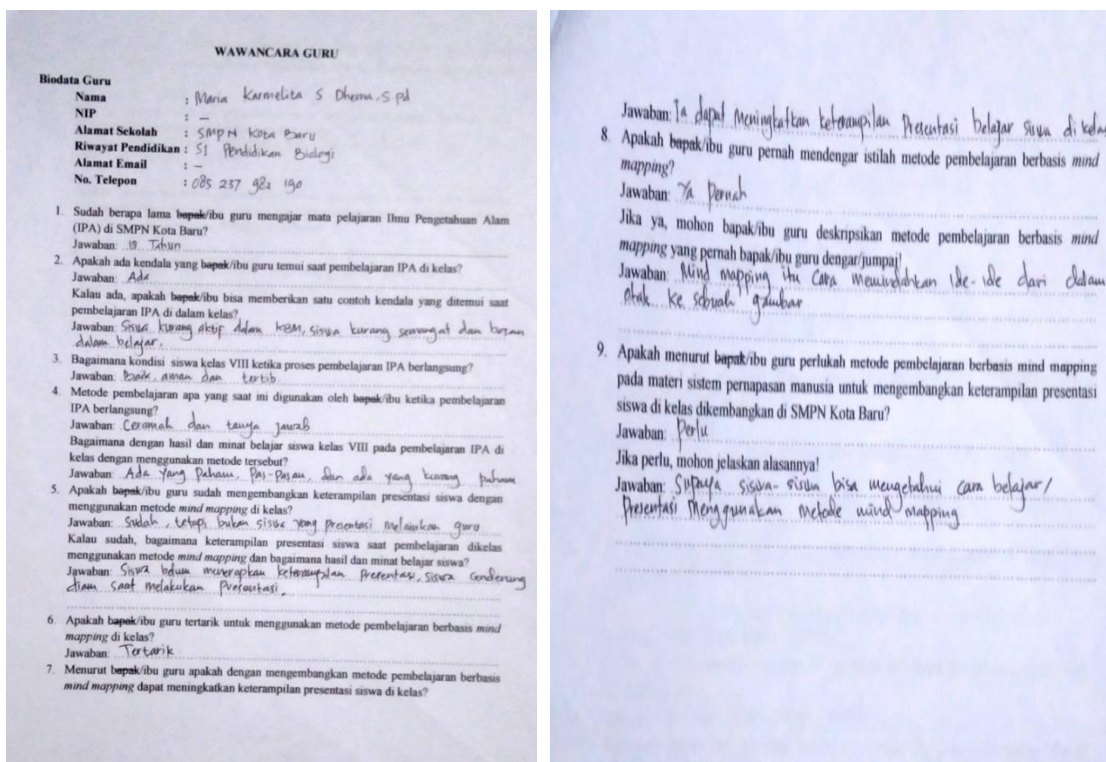 WAWANCARA GURU
Biodata Guru
Nama : Maria Karmelita S Dhema, S pd
NIP : –
Alamat Sekolah : SMPN Kota Baru
Riwayat Pendidikan : S1 Pendidikan Biologi
Alamat Email : –
No. Telepon : 085 237 982 190
1. Sudah berapa lama bapak/ibu guru mengajar mata pelajaran Ilmu Pengetahuan Alam
(IPA) di SMPN Kota Baru?
Jawaban: Tahun
2. Apakah ada kendala yang bapak/ibu guru temui saat pembelajaran IPA di kelas?
Jawaban: Ada
Kalau ada, apakah bapak/ibu bisa memberikan satu contoh kendala yang ditemui saat
pembelajaran IPA di dalam kelas?
Jawaban: Siswa kurang aktif dalam KBM, siswa kurang semangat dan bosan
dalam belajar.
3. Bagaimana kondisi siswa kelas VIII ketika proses pembelajaran IPA berlangsung?
Jawaban: Baik, aman dan tertib
4. Metode pembelajaran apa yang saat ini digunakan oleh bapak/ibu ketika pembelajaran
IPA berlangsung?
Jawaban: Ceramah dan tanya jawab
Bagaimana dengan hasil dan minat belajar siswa kelas VIII pada pembelajaran IPA di
kelas dengan menggunakan metode tersebut?
Jawaban: Ada yang paham, Pas-Pasan, dan ada yang kurang paham
5. Apakah bapak/ibu guru sudah mengembangkan keterampilan presentasi siswa dengan
menggunakan metode mind mapping di kelas?
Jawaban: Sudah, tetapi bukan siswa yang presentasi melainkan guru
Kalau sudah, bagaimana keterampilan presentasi siswa saat pembelajaran dikelas
menggunakan metode mind mapping dan bagaimana hasil dan minat belajar siswa?
Jawaban: Siswa belum menerapkan keterampilan presentasi, siswa cenderung
diam saat melakukan presentasi.
6. Apakah bapak/ibu guru tertarik untuk menggunakan metode pembelajaran berbasis mind
mapping di kelas?
Jawaban: Tertarik
7. Menurut bapak/ibu guru apakah dengan mengembangkan metode pembelajaran berbasis
mind mapping dapat meningkatkan keterampilan presentasi siswa di kelas?
Jawaban: Ia dapat Meningkatkan keterampilan Presentasi belajar siswa di kelas
8. Apakah bapak/ibu guru pernah mendengar istilah metode pembelajaran berbasis mind
mapping?
Jawaban: Ya Pernah
Jika ya, mohon bapak/ibu guru deskripsikan metode pembelajaran berbasis mind
mapping yang pernah bapak/ibu guru dengar/jumpai!
Jawaban: Mind mapping itu Cara memindahkan ide-ide dari dalam
otak ke sebuah gambar
9. Apakah menurut bapak/ibu guru perlukah metode pembelajaran berbasis mind mapping
pada materi sistem pernapasan manusia untuk mengembangkan keterampilan presentasi
siswa di kelas dikembangkan di SMPN Kota Baru?
Jawaban: Perlu
Jika perlu, mohon jelaskan alasannya!
Jawaban: Supaya siswa-siswa bisa mengetahui cara belajar/
Presentasi menggunakan metode mind mapping